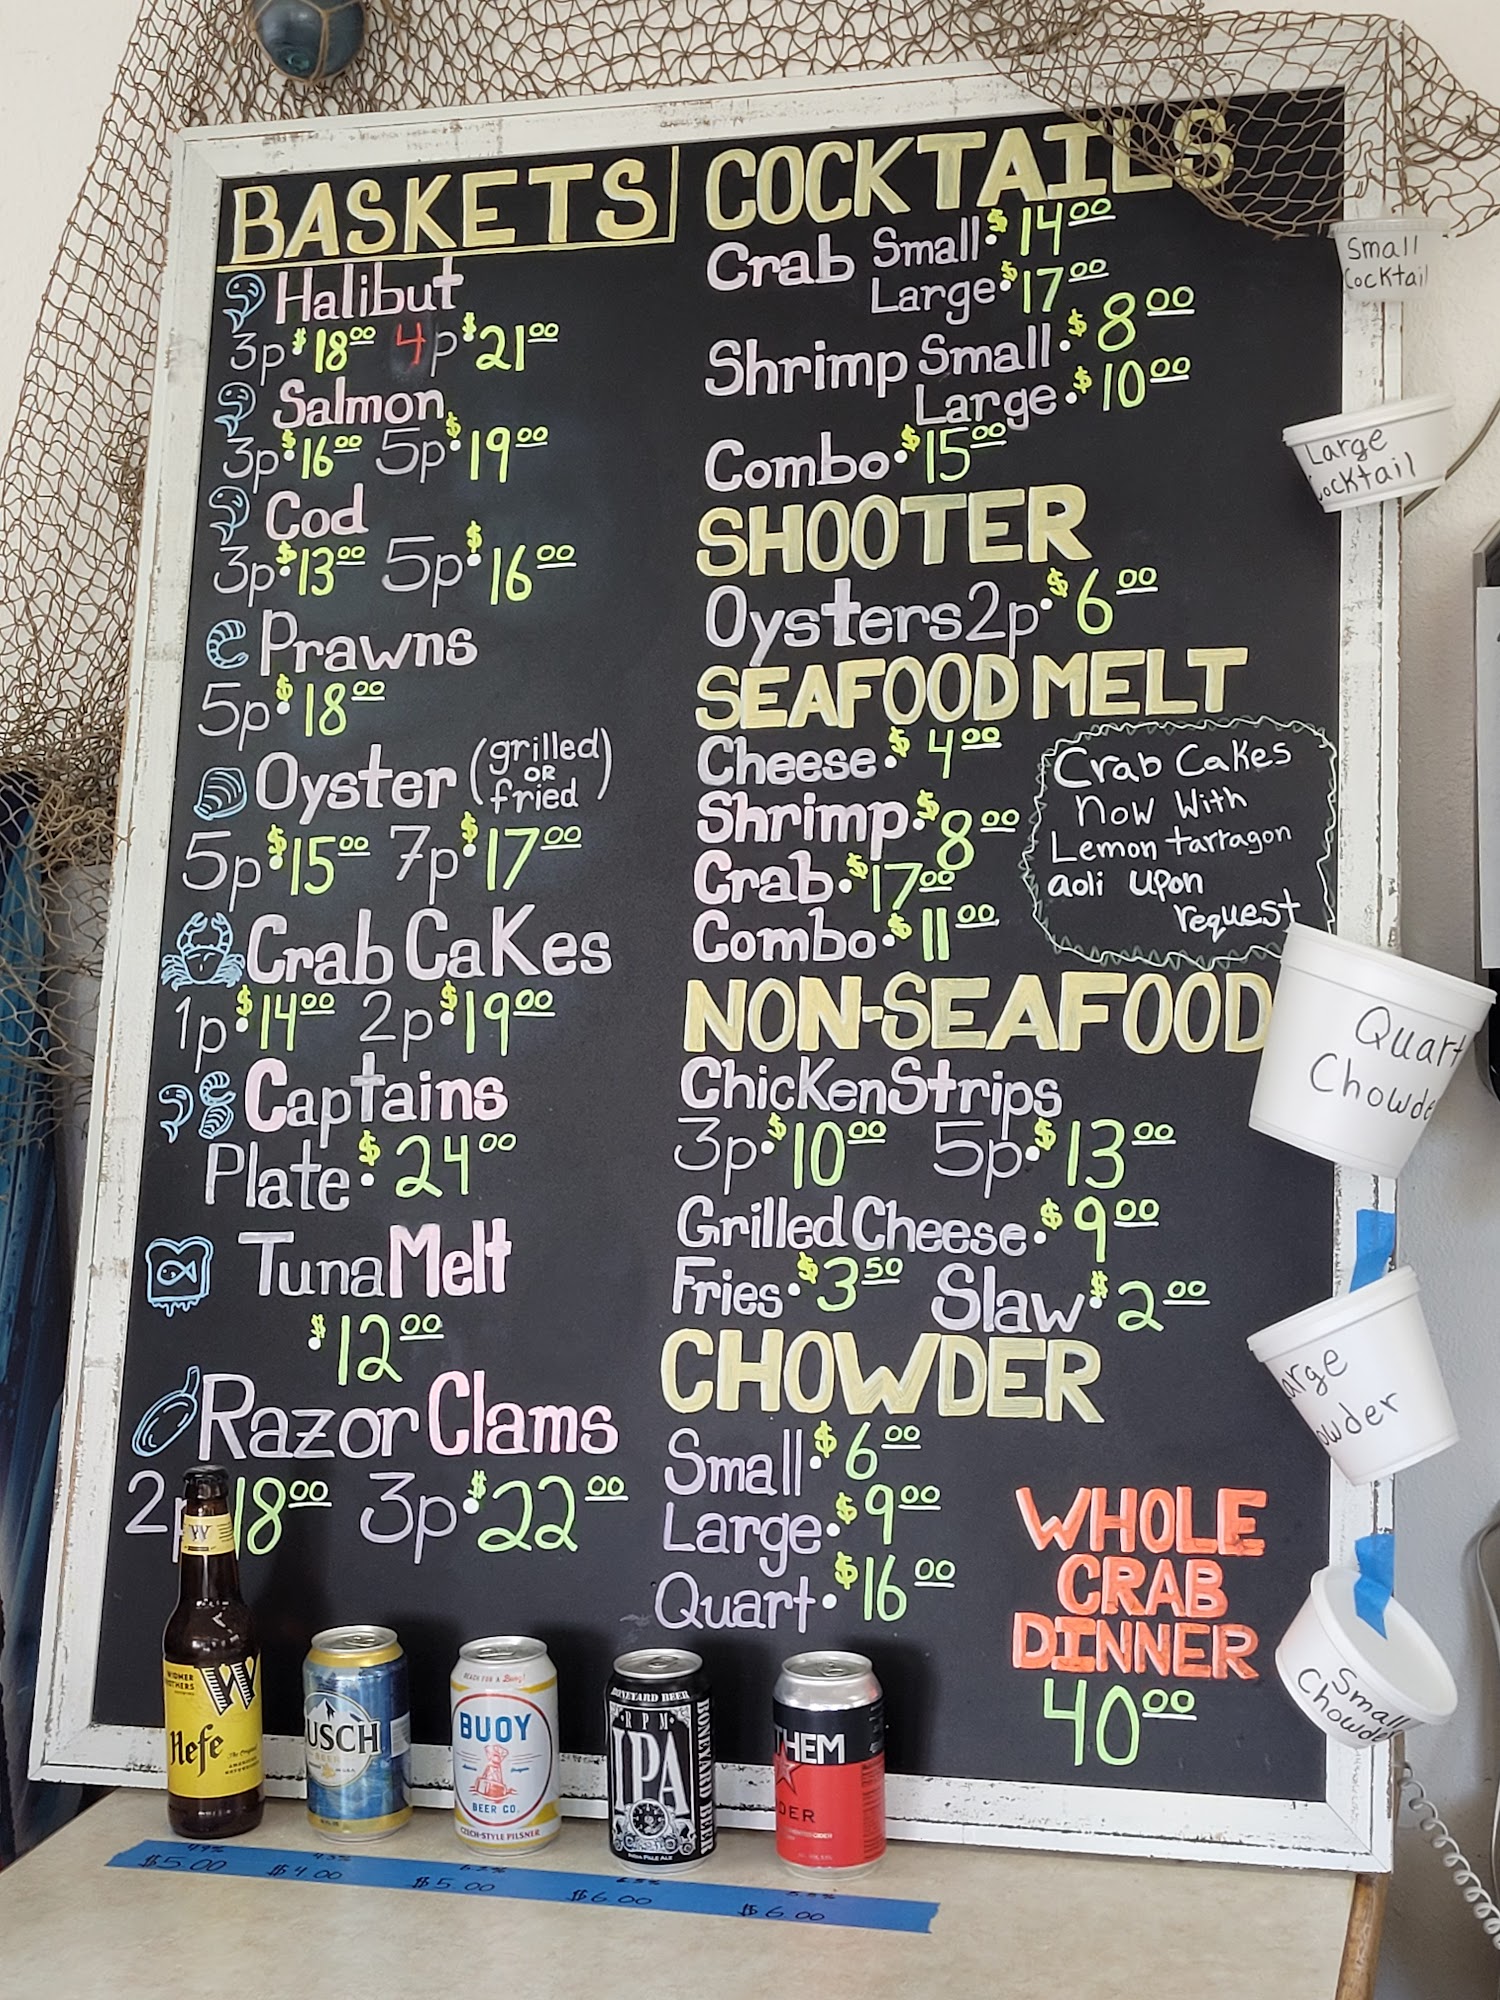 BASKETS
Halibut
3p $18.00 4p $21.00
Salmon
3p $16.00 5p $19.00
Cod
3p $13.00 5p $16.00
Prawns
5p $18.00
Oyster (grilled OR fried)
5p $15.00 7p $17.00
Crab Cakes
1p $14.00 2p $19.00
Captains
Plate $24.00
Tuna Melt
$12.00
Razor Clams
2p 18.00 3p $22.00
COCKTAILS
Crab Small $14.00
Large $17.00
Shrimp Small $8.00
Large $10.00
Combo $15.00
SHOOTER
Oysters 2p $6.00
SEAFOOD MELT
Cheese $4.00
Shrimp $8.00
Crab $17.00
Combo $11.00
Crab Cakes
Now With
Lemon tarragon
aoli upon
request
NON-SEAFOOD
Chicken Strips
3p $10.00 5p $13.00
Grilled Cheese $9.00
Fries $3.50 Slaw $2.00
CHOWDER
Small $6.00
Large $9.00
Quart $16.00
WHOLE
CRAB
DINNER
40.00
Small
Cocktail
Large
Cocktail
Quart
Chowde
arge
owder
Small
Chowde
W
WIDMER
BROTHERS
W
Hefe
USCH
BUOY
BEER CO.
CZECH-STYLE PILSNER
BONEYARD BEER
RPM
IPA
INDIA PALE ALE
BONEYARD BEER
THEM
DER
$5.00 $4.00 $5.00 $6.00 $6.00